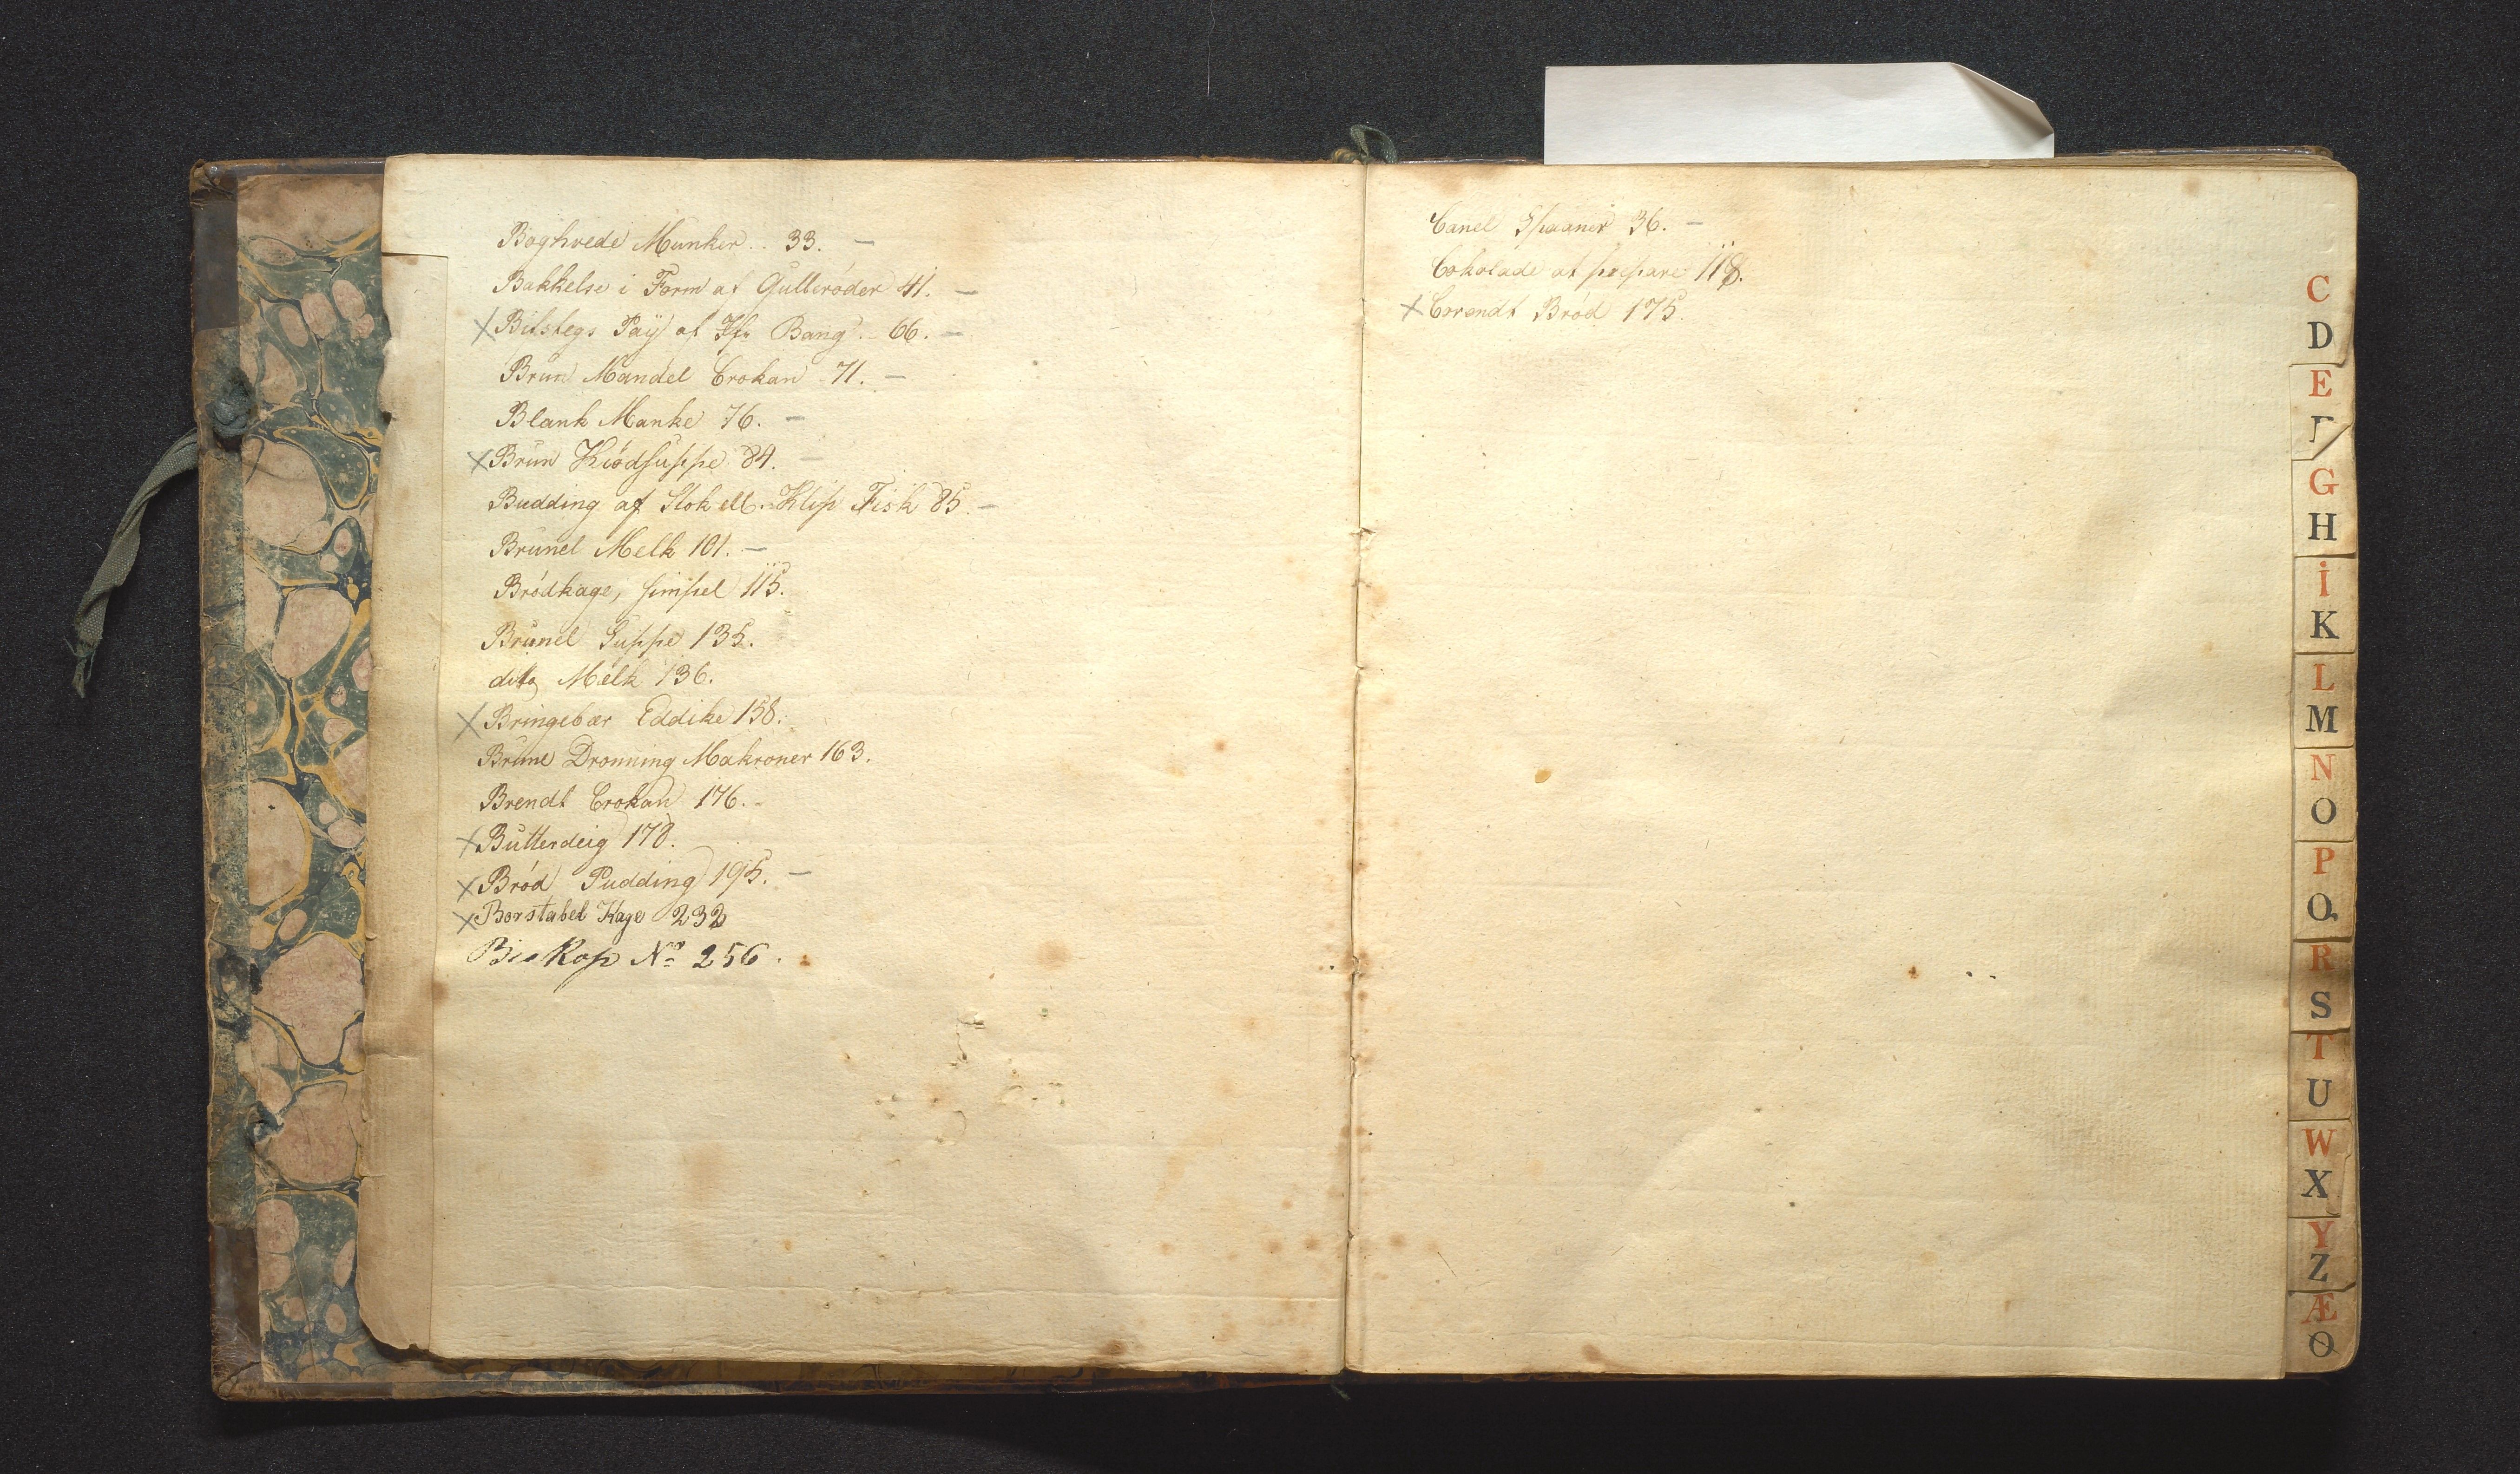 Boghvede Munker .. 33. —
Bakkelse i Form af Gulleröder 41. —
x Bifstegs Paÿ af Jfr Bang .. 66. —
Brun Mandel Crokan 71. —
Blank Manke 76. —
x Brun Kiödsuppe 84. —
Budding af Stok ell. Klip Fisk 85. —
Brunel Melk 101. —
Brödkage, simpel 115.
Brunel Suppe 135.
dito Melk 136.
x Bringebær Eddike 158.
Brune Dronning Makroner 163.
Brendt Crokan 176.
x Butterdeig 178.
x Bröd Pudding 195. —
x Borstabel Kage 232
Biskop No 256.
Canel Spaaner 36. —
Cokolade at præpare 118.
x Corendt Bröd 175.
C
D
E
F
G
H
I
K
L
M
N
O
P
Q
R
S
T
U
W
X
Y
Z
Æ
Ø